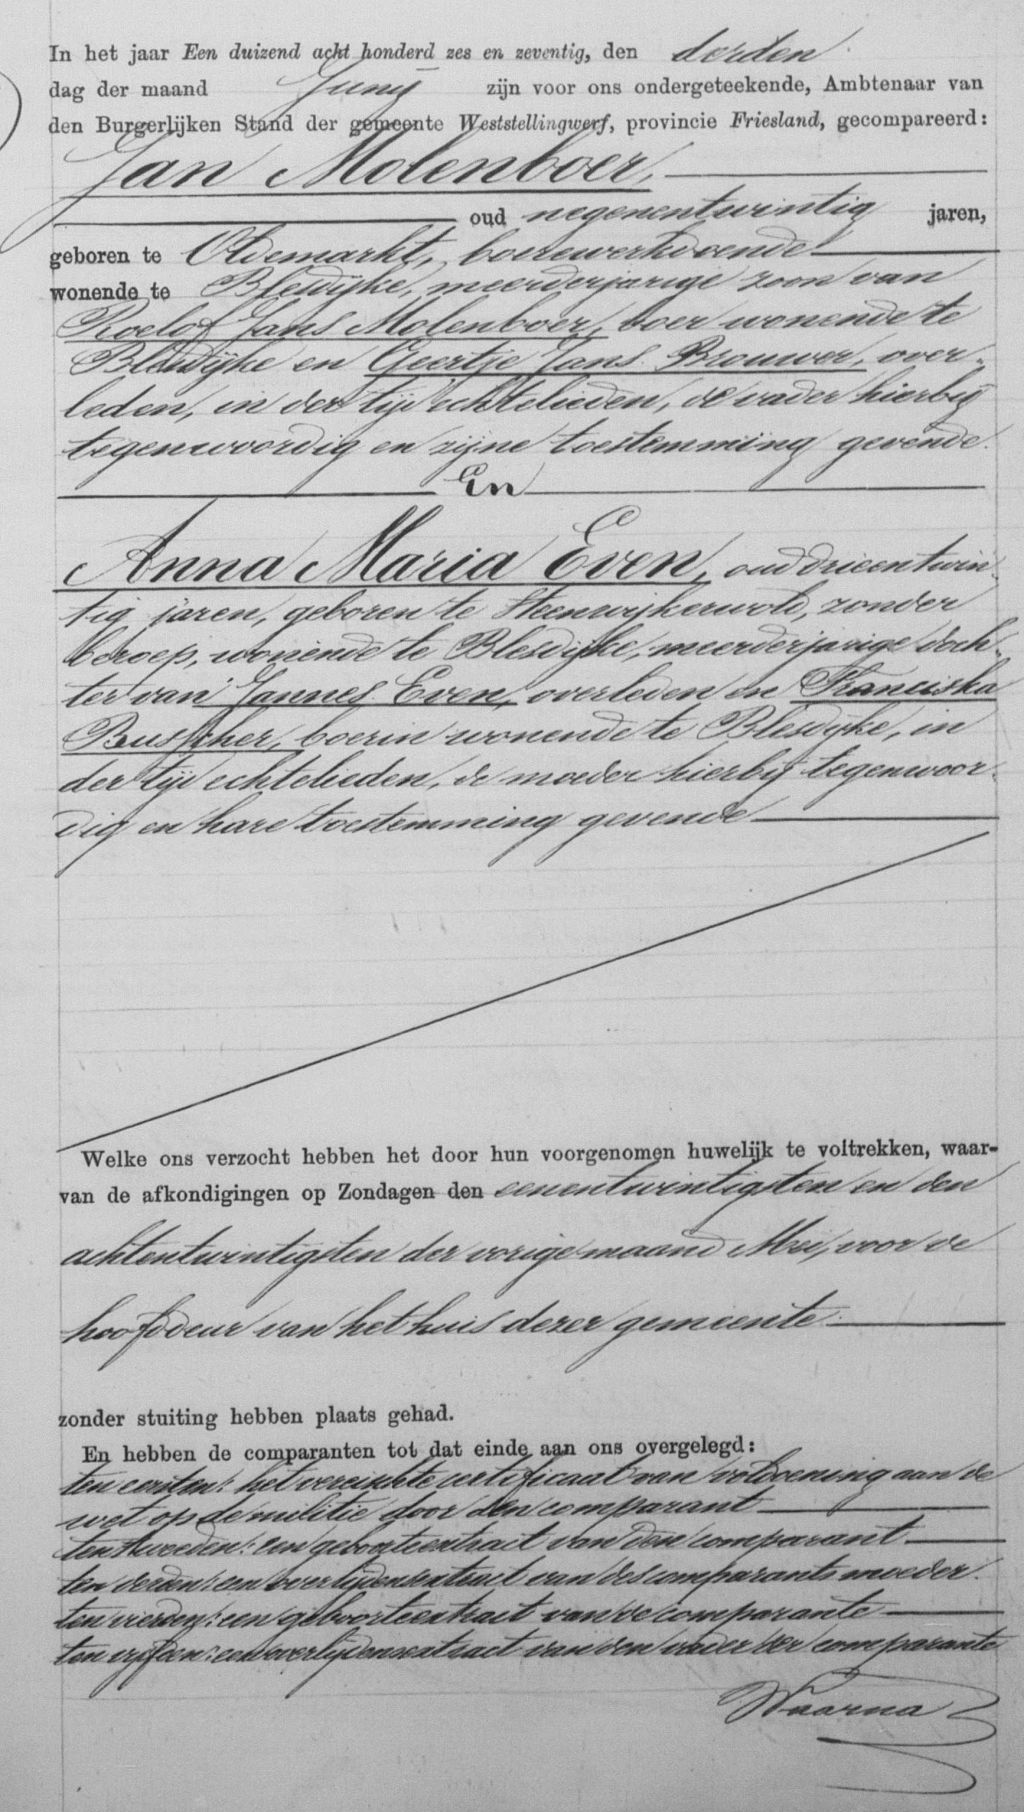 In het jaar Een duizend acht honderd zes en zeventig, den derden
dag der maand Junij zijn voor ons ondergeteekende, Ambtenaar van
den Burgerlijken Stand der gemeente Weststellingwerf, provincie Friesland, gecompareerd:
Jan Molenboer,
oud negenentwintig jaren,
geboren te Oldemarkt, boerewerkdoende
wonende te Blesdijke, meerderjarige zoon van
Roelof Jans Molenboer, boer wonende te
Blesdijke en Geertje Jans Brouwer, over-
leden, in der tijd echtelieden, de vader hierbij
tegenwoordig en zijne toestemming gevende.
En
Anna Maria Even, oud drieentwin-
tig jaren, geboren te Steenwijkerwold, zonder
beroep, wonende te Blesdijke, meerderjarige doch-
ter van Jannes Even, overleden en Franciska
Busscher, boerin wonende te Blesdijke, in
der tijd echtelieden, de moeder hierbij tegenwoor-
dig en hare toestemming gevende
Welke ons verzocht hebben het door hun voorgenomen huwelijk te voltrekken, waar-
van de afkondigingen op Zondagen den eenentwintigsten en den
achtentwintigsten der vorige maand Mei, voor de
hoofddeur van het huis dezer gemeente
zonder stuiting hebben plaats gehad.
En hebben de comparanten tot dat einde aan ons overgelegd:
ten eersten: het vereischte certificaat van voldoening aan de
wet op de militie door den comparant
ten tweeden: een geboorteextract van den comparant
ten derden: een overlijdensextract van des comparants moeder.
ten vierden: een geboorteextract van de comparante
ten vijfden: een overlijdensextract van den vader der comparante
Waarna